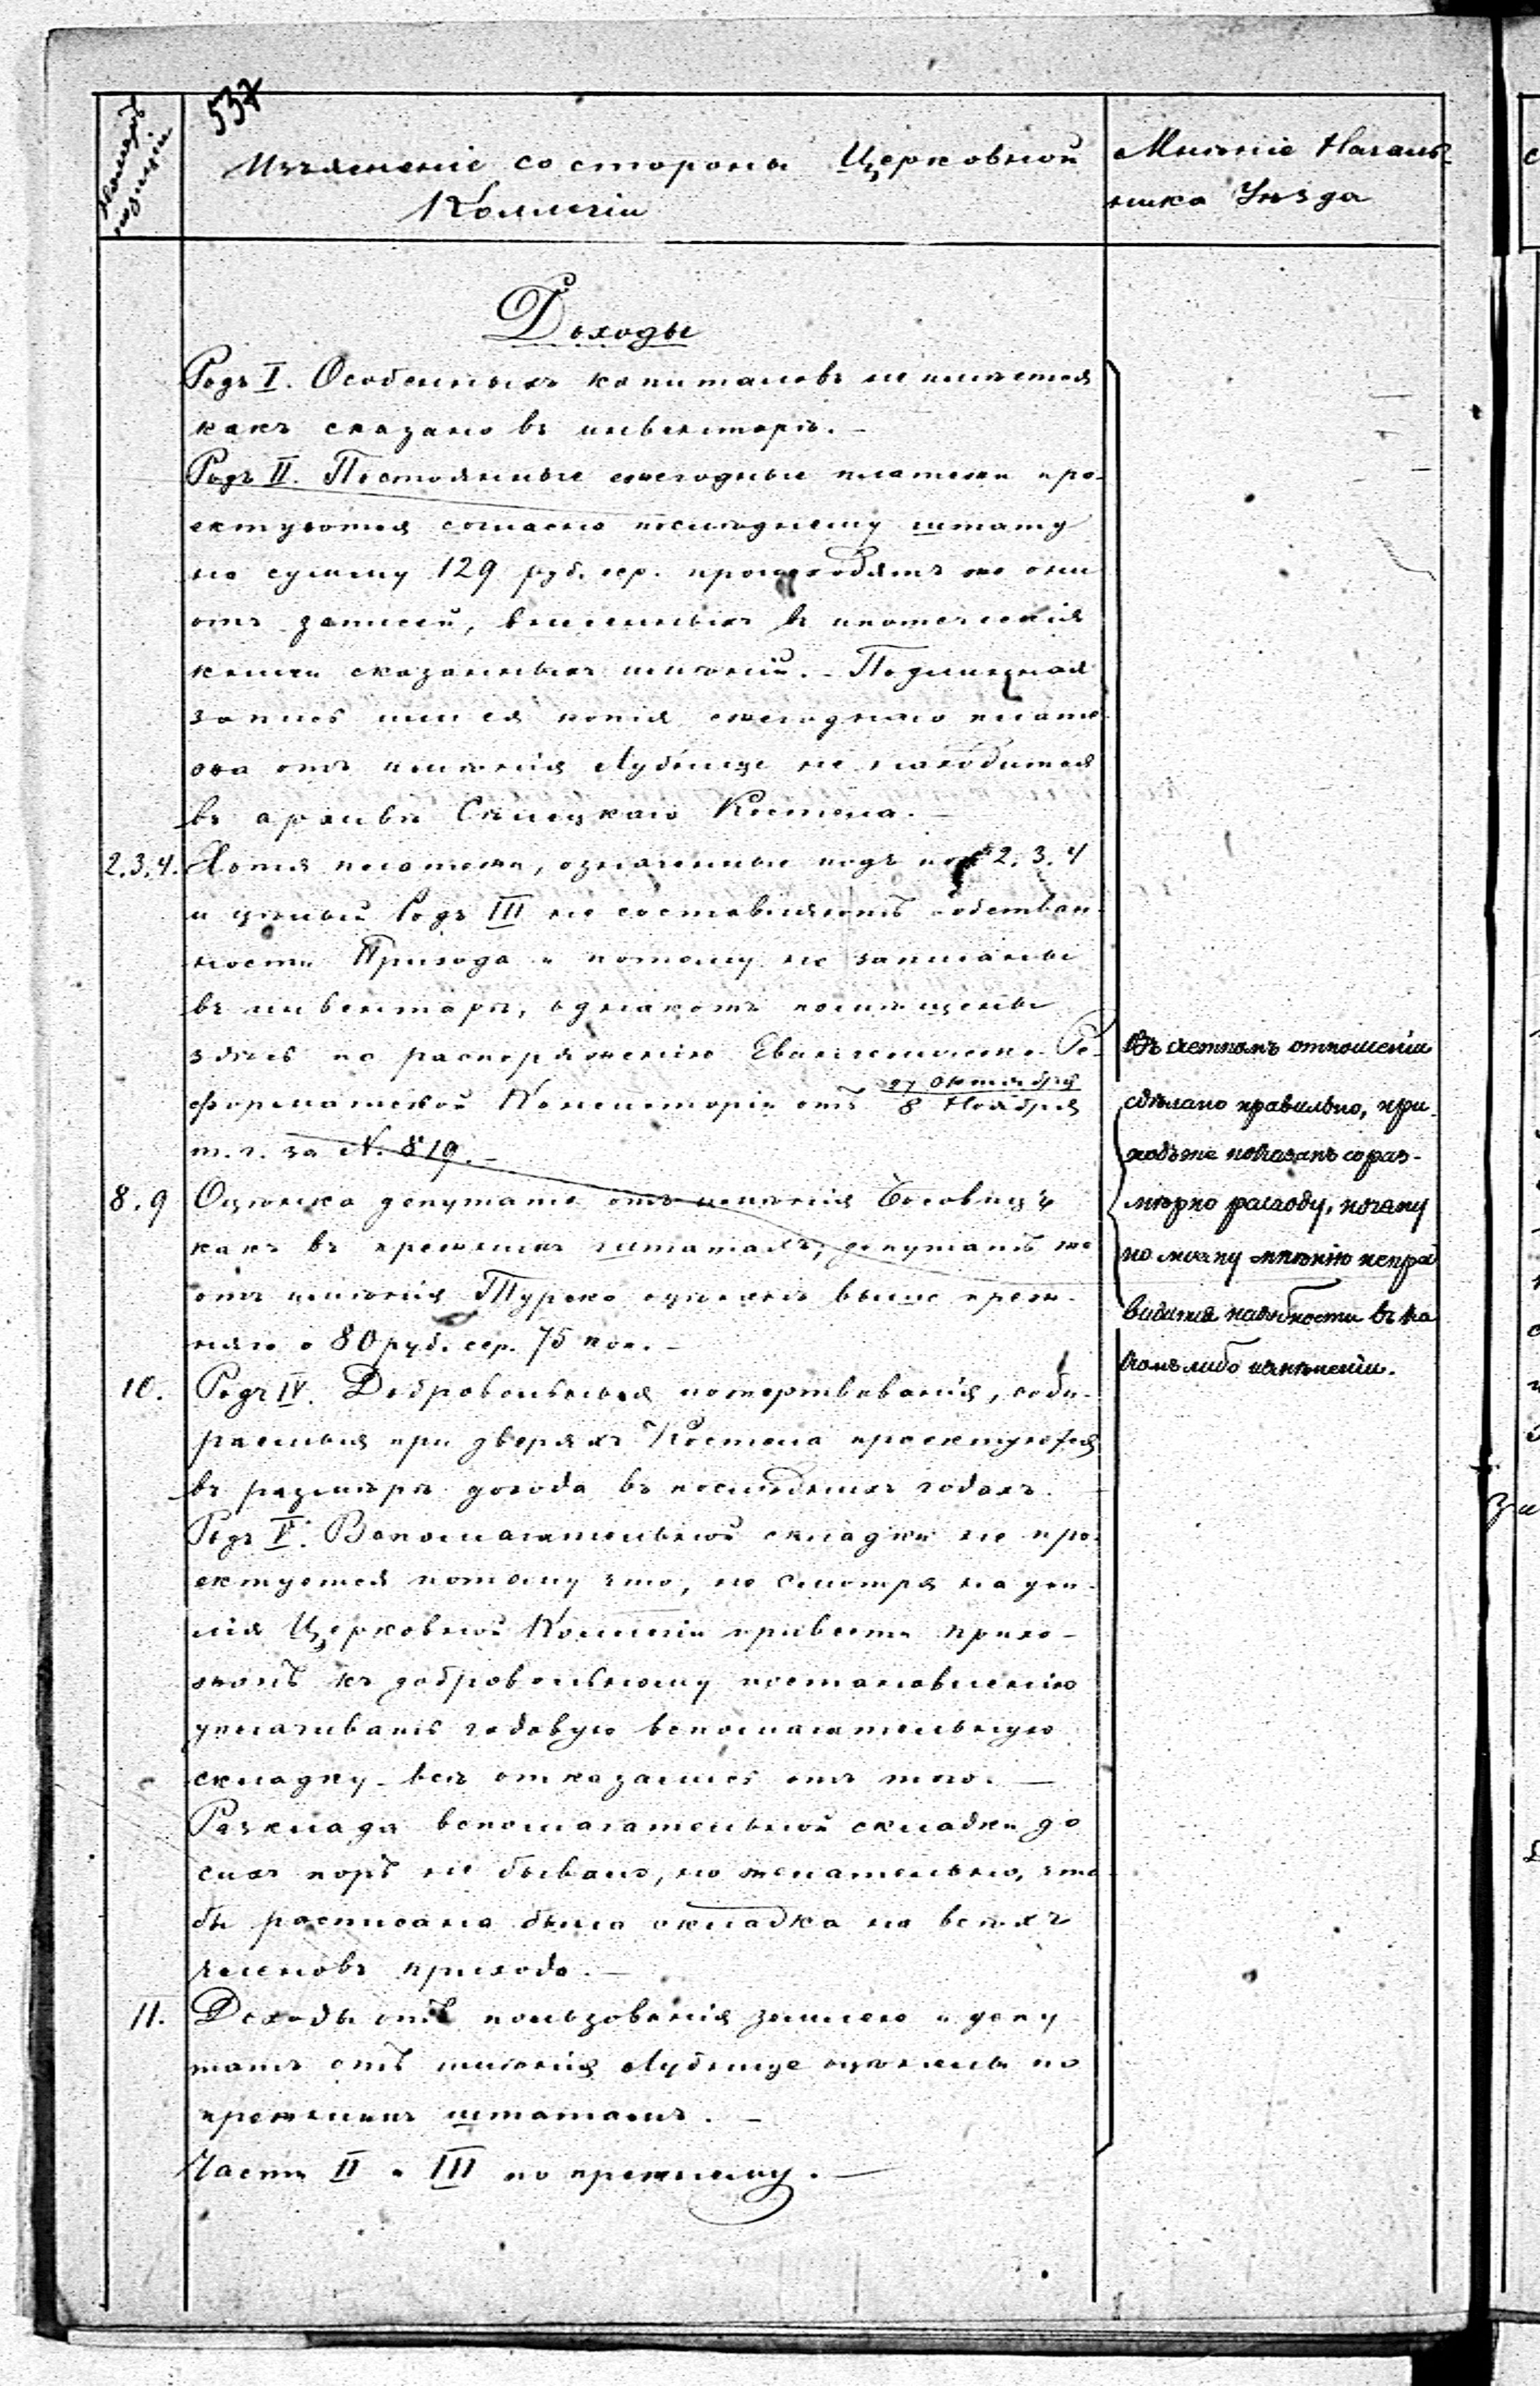 537
Номеръ позиціи
Изъясненіе со стороны Церковной
Коллегіи
Мнѣніе Началь-
ника Уѣзда
Доходы
Родъ I. Особенныхъ капиталовъ не имѣется
какъ сказано въ инвентарѣ. –
Родъ II. Постоянные ежегодные платежи про-
ектуются согласно послѣднему штату
на сумму 129 руб. сер. происходятъ же они
отъ записей, внесенныхъ въ ипотечныя
книги сказанныхъ имѣній. – Подлинная
запись или ея копія ежегоднаго плате-
жа отъ имѣнія Лубнице не находится
въ архивѣ Сѣлецкаго Костела. –
2.3.4. Хотя платежи, означенные подъ поз 2. 3. 4
и цѣлый Родъ III не составляютъ собствен-
ности Прихода и потому не записаны
въ инвентарь, однакожъ помѣщены
здѣсь по распоряженію Евангелическо-Ре-
форматской Консисторіи отъ 27 Октября / 8 Ноября
т. г. за N. 819. –
8.9 Оцѣнка депутата отъ имѣнія Босовицъ
какъ въ прежнихъ штатахъ, депутатъ же
отъ имѣнія Турско оцѣненъ выше преж-
няго о 80 руб. сер. 75 коп. –
10. Родъ IV. Добровольныя пожертвованія, соби-
раемыя при дверяхъ Костела проектуются
въ размѣрѣ дохода въ послѣднихъ годахъ. –
Родъ V. Вспомагательной складки не про-
ектуется потому что, не смотря на уси-
лія Церковной Коллегіи привести прихо-
жанъ къ добровольному постановленію
уплачивать годовую вспомагательную
складку – всѣ отказались отъ того. –
Расклада вспомагательной складки до
сихъ поръ не бывало, но желательно, что-
бы расписана была складка на всѣхъ
членовъ прихода. –
11. Доходы отъ пользованія землею и депу-
татъ отъ имѣнія Лубнице оцѣнены по
прежнимъ штатамъ. –
Части II и III по прежнему. –
Въ счетномъ отношеніи
сдѣлано правильно, при-
ходъ же показанъ сораз-
мѣрно расходу, почему
по моему мнѣнію непред
видится надобности въ ка
комъ либо измѣненіи.